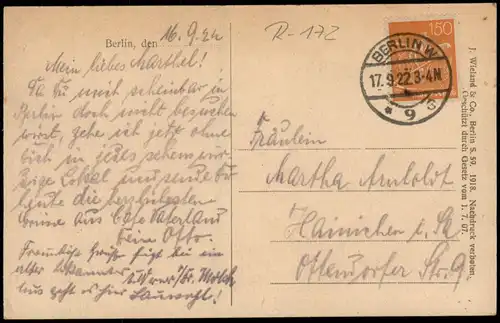 R-172
Berlin, den 16.9.22
Mein liebes Marthel!
Da Du mich scheinbar in
Berlin doch nicht besuchen
wirst, gehe ich jetzt ohne
Dich in jedes sehenswür-
dige Lokal und sende Dir
heute die herzlichsten
Grüsse aus Café Vaterland
Dein Otto.
Freundliche Grüße fügt bei ein
alter Bekannter
150
BERLIN W
17.9.22.3-4N
* 9
Fräulein
Martha Arnoldt
Hainichen i. Sa
Ottendorfer Str. 9
J. Wieland & Co., Berlin S. 59. 1918. Nachdruck verboten.
Geschützt durch Gesetz vom 1. 7. 07.